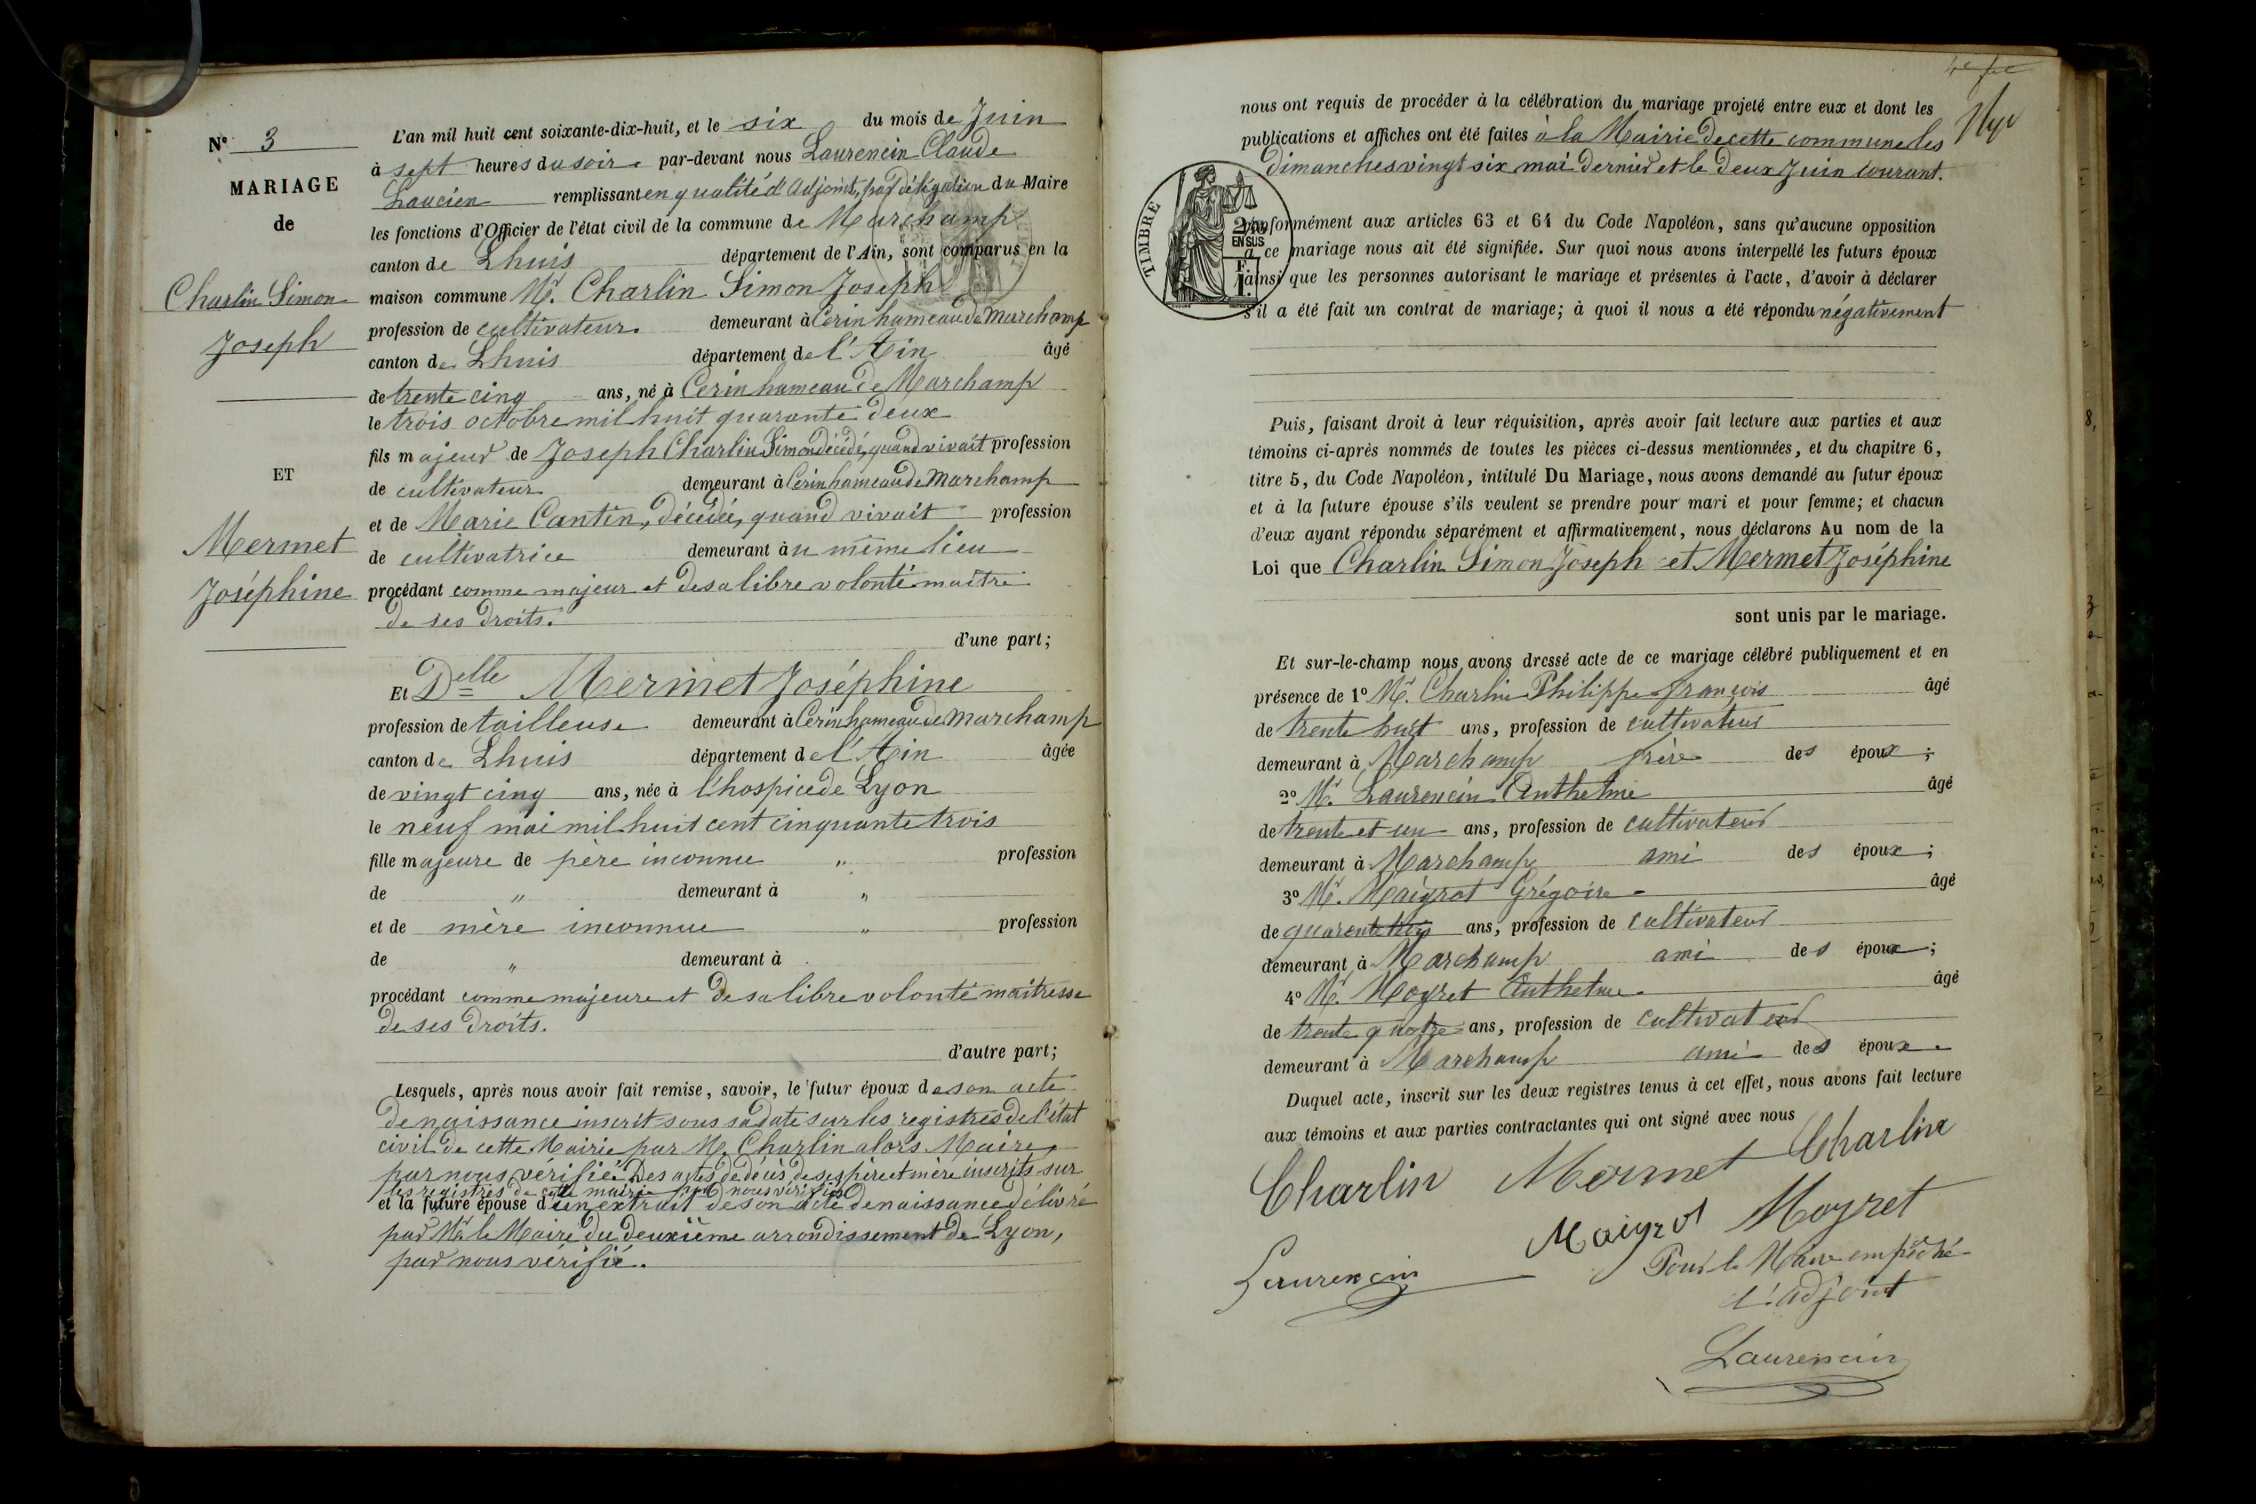 N° 3
MARIAGE
de
Charlin Simon
Joseph
ET
Mermet
Joséphine
L'an mil huit cent soixante-dix-huit, et le six du mois de Juin
à sept heures du soir par-devant nous Laurencin Claude
Laucien remplissant en qualité d'Adjoint, par délégation du Maire
les fonctions d'Officier de l'état civil de la commune de Marchamp
canton de Lhuis département de l'Ain, sont comparus en la
maison commune Mr. Charlin Simon Joseph
profession de cultivateur. demeurant à Cerin hameau de Marchamp
canton de Lhuis département de l'Ain âgé
de trente cinq ans, né à Cerin hameau de Marchamp
le trois octobre mil huit quarante deux
fils majeur de Joseph Charlin Simon décédé, quand vivait profession
de cultivateur demeurant à Cerin hameau de Marchamp
et de Marie Cantin, décédée, quand vivait profession
de cultivatrice demeurant au même lieu
procédant comme majeur et de sa libre volonté maître
de ses droits.
d'une part;
Et Delle Mermet Joséphine
profession de tailleuse demeurant à Cerin hameau de Marchamp
canton de Lhuis département de l'Ain âgée
de vingt cinq ans, née à l'hospice de Lyon
le neuf mai mil huit cent cinquante trois
fille majeure de père inconnu " profession
de " demeurant à "
et de mère inconnue " profession
de " demeurant à
procédant comme majeure et de sa libre volonté maîtresse
de ses droits.
d'autre part;
Lesquels, après nous avoir fait remise, savoir, le futur époux de son acte
de naissance inscrit sous sa date sur les registres de l'état
civil de cette Mairie par M. Charlin alors Maire,
par nous vérifié. Des actes de décès de ses père et mère inscrits sur
les registres de cette mairie par nous vérifiés
et la future épouse d'un extrait de son acte de naissance délivré
par Mr. le Maire du deuxième arrondissement de Lyon,
par nous vérifié.
nous ont requis de procéder à la célébration du mariage projeté entre eux et dont les
publications et affiches ont été faites à la Mairie de cette commune les
dimanches vingt six mai dernier et le deux Juin courant.
TIMBRE
EN SUS
conformément aux articles 63 et 64 du Code Napoléon, sans qu'aucune opposition
à ce mariage nous ait été signifiée. Sur quoi nous avons interpellé les futurs époux
ainsi que les personnes autorisant le mariage et présentes à l'acte, d'avoir à déclarer
s'il a été fait un contrat de mariage; à quoi il nous a été répondu négativement
Puis, faisant droit à leur réquisition, après avoir fait lecture aux parties et aux
témoins ci-après nommés de toutes les pièces ci-dessus mentionnées, et du chapitre 6,
titre 5, du Code Napoléon, intitulé Du Mariage, nous avons demandé au futur époux
et à la future épouse s'ils veulent se prendre pour mari et pour femme; et chacun
d'eux ayant répondu séparément et affirmativement, nous déclarons Au nom de la
Loi que Charlin Simon Joseph et Mermet Joséphine
sont unis par le mariage.
Et sur-le-champ nous avons dressé acte de ce mariage célébré publiquement et en
présence de 1° Mr. Charlin Philippe françois âgé
de trente huit ans, profession de cultivateur
demeurant à Marchamp frère des époux;
2° Mr. Laurencin Anthelme âgé
de trente et un ans, profession de cultivateur
demeurant à Marchamp ami des époux;
3° Mr. Maigrot Grégoire âgé
de quarente trois ans, profession de cultivateur
demeurant à Marchamp ami des époux;
4° Mr. Moyret Anthelme âgé
de trente quatre ans, profession de cultivateur
demeurant à Marchamp ami des époux.
Duquel acte, inscrit sur les deux registres tenus à cet effet, nous avons fait lecture
aux témoins et aux parties contractantes qui ont signé avec nous
Charlin Mermet Charlin
Maigrot Moyret
Laurencin
Pour le Maire empêché
l'adjoint
Laurencin